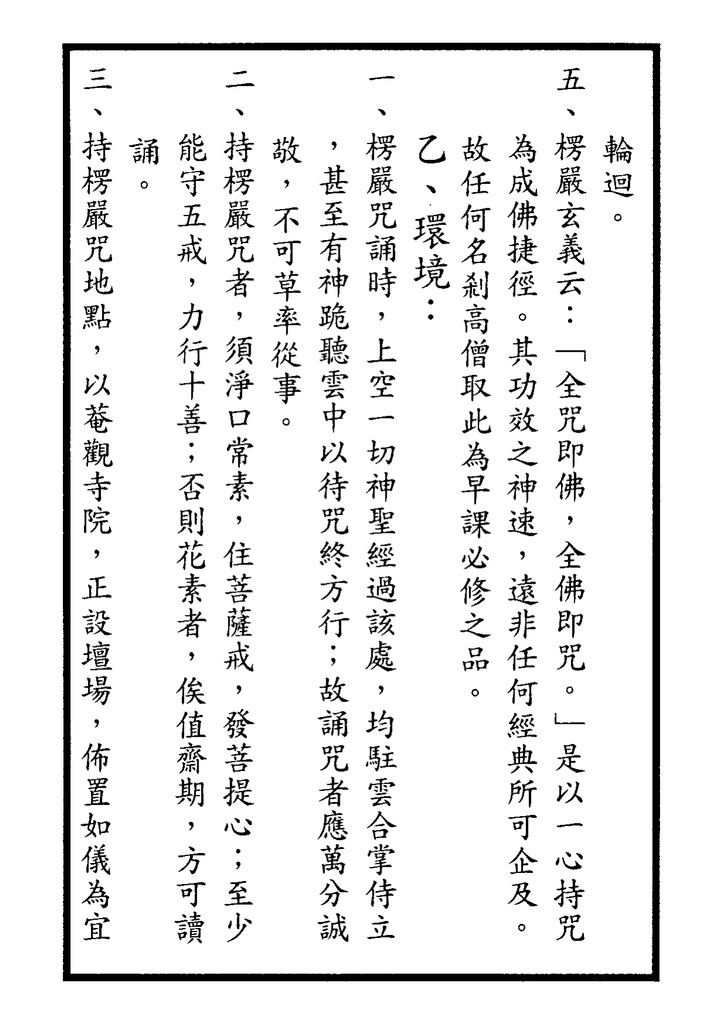 輪迴。
五、楞嚴玄義云：「全咒即佛，全佛即咒。」是以一心持咒
為成佛捷徑。其功效之神速，遠非任何經典所可企及。
故任何名剎高僧取此為早課必修之品。
乙、環境：
一、楞嚴咒誦時，上空一切神聖經過該處，均駐雲合掌侍立
，甚至有神跪聽雲中以待咒終方行；故誦咒者應萬分誠
敬，不可草率從事。
二、持楞嚴咒者，須淨口常素，住菩薩戒，發菩提心；至少
能守五戒，力行十善；否則花素者，俟值齋期，方可讀
誦。
三、持楞嚴咒地點，以菴觀寺院，正設壇場，佈置如儀為宜